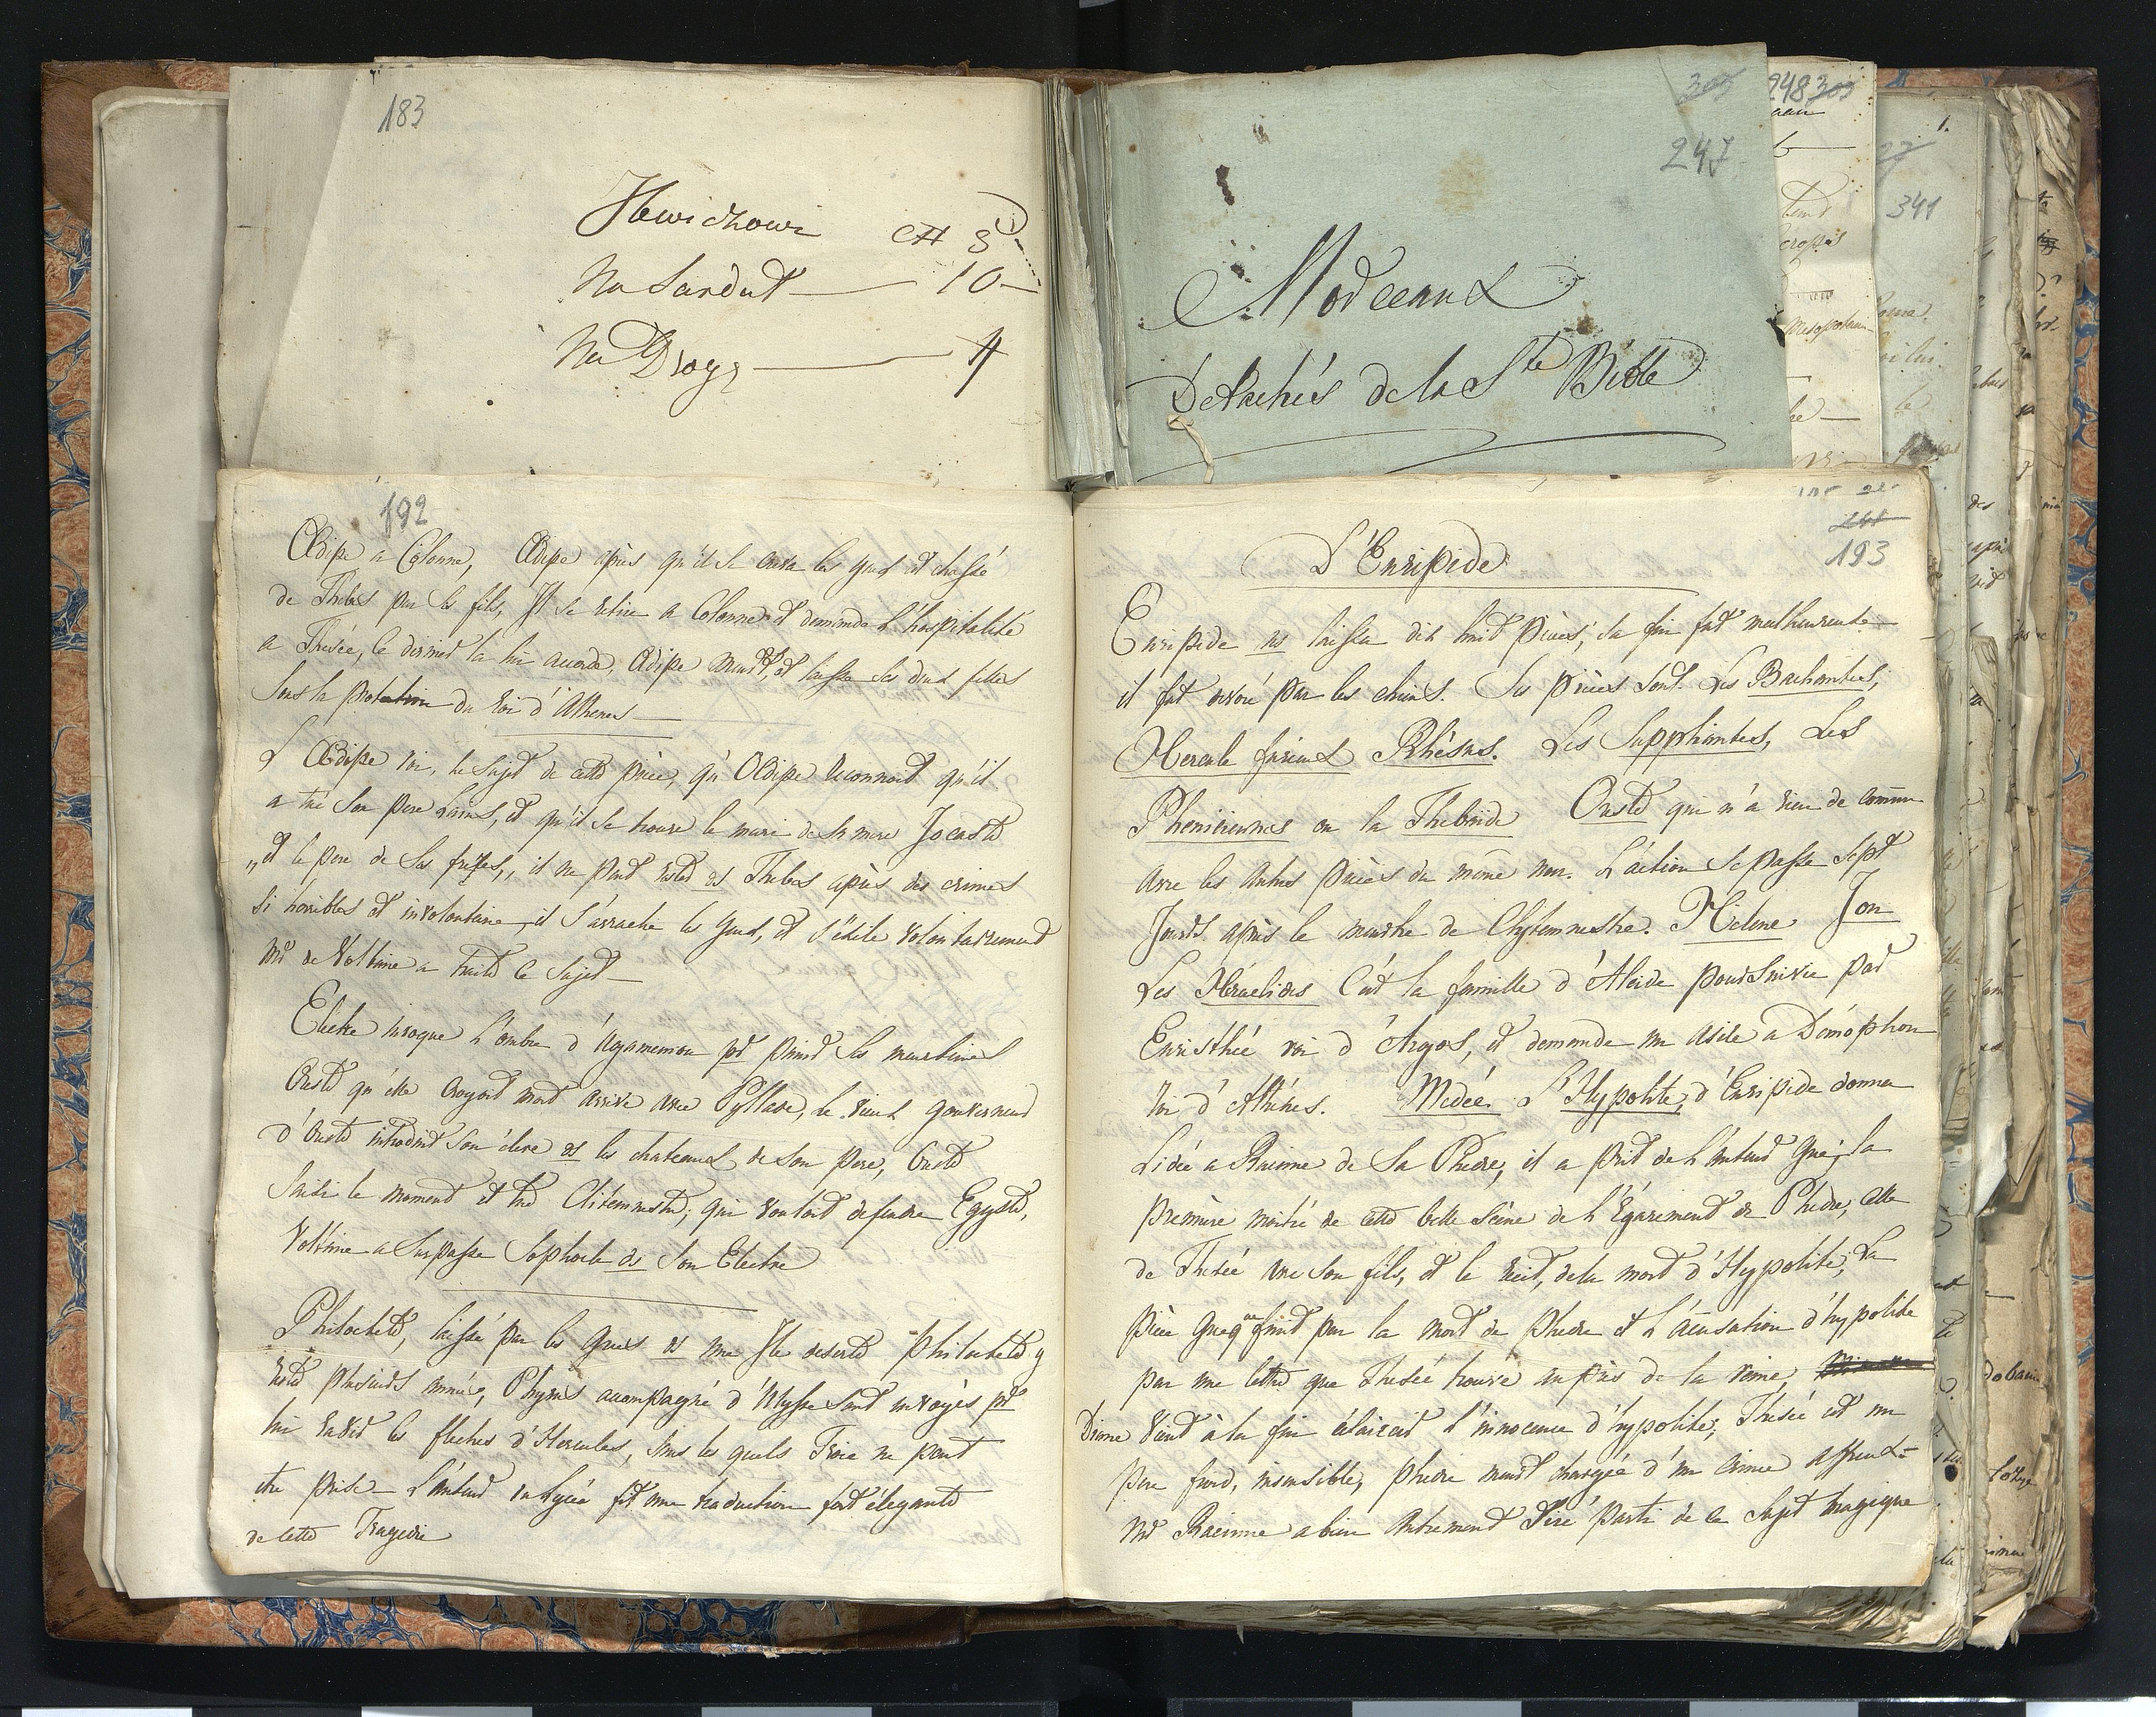 183
Ilewiczowi # 8
Na Sandut — 10 —
Na Drogę — 4
305
247
Morceaux
Detachés de la Ste Bible
248 305
341
192
Œdipe a Colonne, Œdipe après qu'il se creva les yeux est chassé
de Thebes par ses fils, Il se retire a Colonne et demande l'hospitalité
a Thesée, ce dernier la lui accorde, Œdipe meurt, et laisse ses deux filles
sous la protection du roi d'Athenes —
L'Œdipe roi, le sujet de cette pièce, qu'Œdipe reconnoit qu'il
a tué son pere Laius, et qu'il se trouve le mari de sa mere Jocaste
„et le pere de ses freres„ il ne peut rester ds Thebes après des crimes
si horribles et involontaire, il s'arrache les yeux, et s'exile volontairement
Mr de Voltaire a traité ce sujet —
Electre invoque l'ombre d'Agamemnon pr punir ses meurtriers
Oreste qu'elle croyoit mort arrive avec Pyllade, le vieux gouverneur
d'Oreste introduit son éleve ds les chateaux de son pere, Oreste
saisi le moment et tue Clitemnestre, qui vouloit defendre Egyste,
Voltaire a surpasse Sophocle ds son Electre
Philoctete, laissé par les grecs ds une Ile deserte Philoctete y
reste plusieurs année, Phyrus accompagné d'Ulysse sont envoyés pr
lui ravir les fleches d'Hercules, sans les quels Troie ne peut
etre prise — L'auteur du Lycée fit une traduction fort élegante
de cette Tragedie
193
L'Euripide
Euripide ns laissa dix huit pièces, sa fin fut malheureuse —
il fut devoré par les chiens. Ses pièces sont. Les Bachantes,
Hercule furieux Rhésus. Les Supphantes, Les
Pheniciennes ou la Thebaide Oreste qui n'a rien de comun
avec les autres pièces du même nom. L'action se passe sept
Jours après le meurtre de Clytemnestre. Helene Jon
Les Héraclides C'est la famille d'Alcide poursuivie par
Euristhée roi d'Argos, et demande un asile a Démophon
roi d'Athénes. Medée. L'Hypolite, d'Euripide donna
L'idée a Racinne de sa Phedre, il a prit de l'auteur grec la
première moitié de cette belle scène de l'Égarement de Phédre, celle
de Thésée avec son fils, et le recit, de la mort d'Hypolite, La
pièce grecque finit par la mort de phedre et l'acusation d'hypolite
par une lettre que Thesée trouve au près de la reine,
Diane vient à la fin éclaircir l'innocence d'hypolite, Thésée est un
pere froid, insensible, phedre meurt chargée d'un crime affreux —
Mr Racinne a bien autrement tiré parti de ce sujet tragique